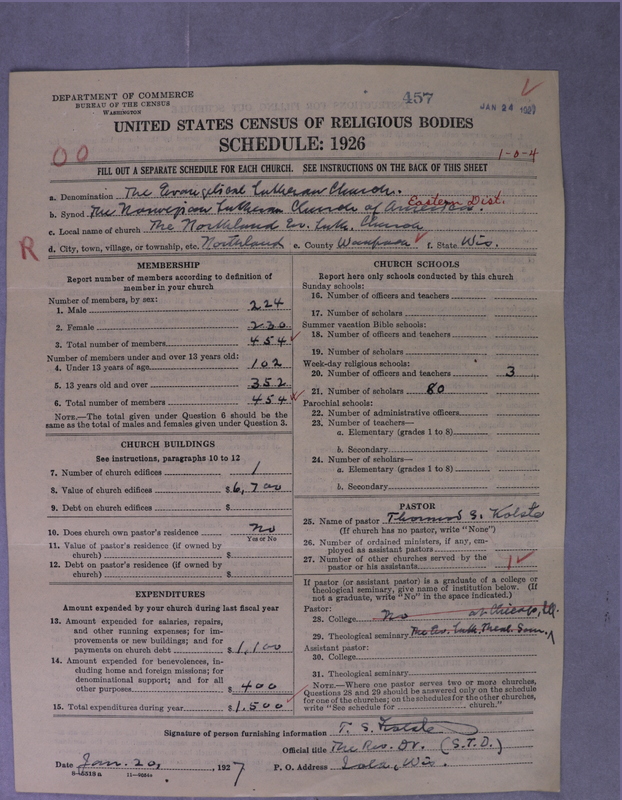 DEPARTMENT OF COMMERCE
BUREAU OF THE CENSUS
WASHINGTON
457
JAN 24 1927
UNITED STATES CENSUS OF RELIGIOUS BODIES
SCHEDULE: 1926
00
1-0-4
FILL OUT A SEPARATE SCHEDULE FOR EACH CHURCH. SEE INSTRUCTIONS ON THE BACK OF THIS SHEET
a. Denomination The Evangelical Lutheran Church.
b. Synod The Norwegian Lutheran Church of America. Eastern Dist.
c. Local name of church The Northland Ev. Luth. Church
R
d. City, town, village, or township, etc. Northland e. County Waupaca f. State Wis.
MEMBERSHIP
Report number of members according to definition of
member in your church
Number of members, by sex:
1. Male 224
2. Female 230
3. Total number of members 454
Number of members under and over 13 years old:
4. Under 13 years of age 102
5. 13 years old and over 352
6. Total number of members 454
NOTE.—The total given under Question 6 should be the
same as the total of males and females given under Question 3.
CHURCH BUILDINGS
See instructions, paragraphs 10 to 12
7. Number of church edifices 1
8. Value of church edifices $6,700
9. Debt on church edifices $
10. Does church own pastor's residence? No
Yes or No
11. Value of pastor's residence (if owned by
church) $
12. Debt on pastor's residence (if owned by
church) $
EXPENDITURES
Amount expended by your church during last fiscal year
13. Amount expended for salaries, repairs,
and other running expenses; for im-
provements or new buildings; and for
payments on church debt $1,100
14. Amount expended for benevolences, in-
cluding home and foreign missions; for
denominational support; and for all
other purposes $400
15. Total expenditures during year $1,500
CHURCH SCHOOLS
Report here only schools conducted by this church
Sunday schools:
16. Number of officers and teachers
17. Number of scholars
Summer vacation Bible schools:
18. Number of officers and teachers
19. Number of scholars
Week-day religious schools:
20. Number of officers and teachers 3
21. Number of scholars 80
Parochial schools:
22. Number of administrative officers
23. Number of teachers—
a. Elementary (grades 1 to 8)
b. Secondary
24. Number of scholars—
a. Elementary (grades 1 to 8)
b. Secondary
PASTOR
25. Name of pastor Thomas S. Kolste
(If church has no pastor, write "None")
26. Number of ordained ministers, if any, em-
ployed as assistant pastors
27. Number of other churches served by the
pastor or his assistants 1
If pastor (or assistant pastor) is a graduate of a college or
theological seminary, give name of institution below. (If
not a graduate, write "No" in the space indicated.)
Pastor:
28. College No at Chicago, Ill.
29. Theological seminary The Ev. Luth. Theol. Sem.
Assistant pastor:
30. College
31. Theological seminary
NOTE.—Where one pastor serves two or more churches,
Questions 28 and 29 should be answered only on the schedule
for one of the churches; on the schedules for the other churches,
write "See schedule for church."
Signature of person furnishing information T. S. Kolste
Official title The Rev. Dr. (S.T.D.)
Date Jan. 20, 1927 P. O. Address Iola, Wis.
8-5510a 11-9084